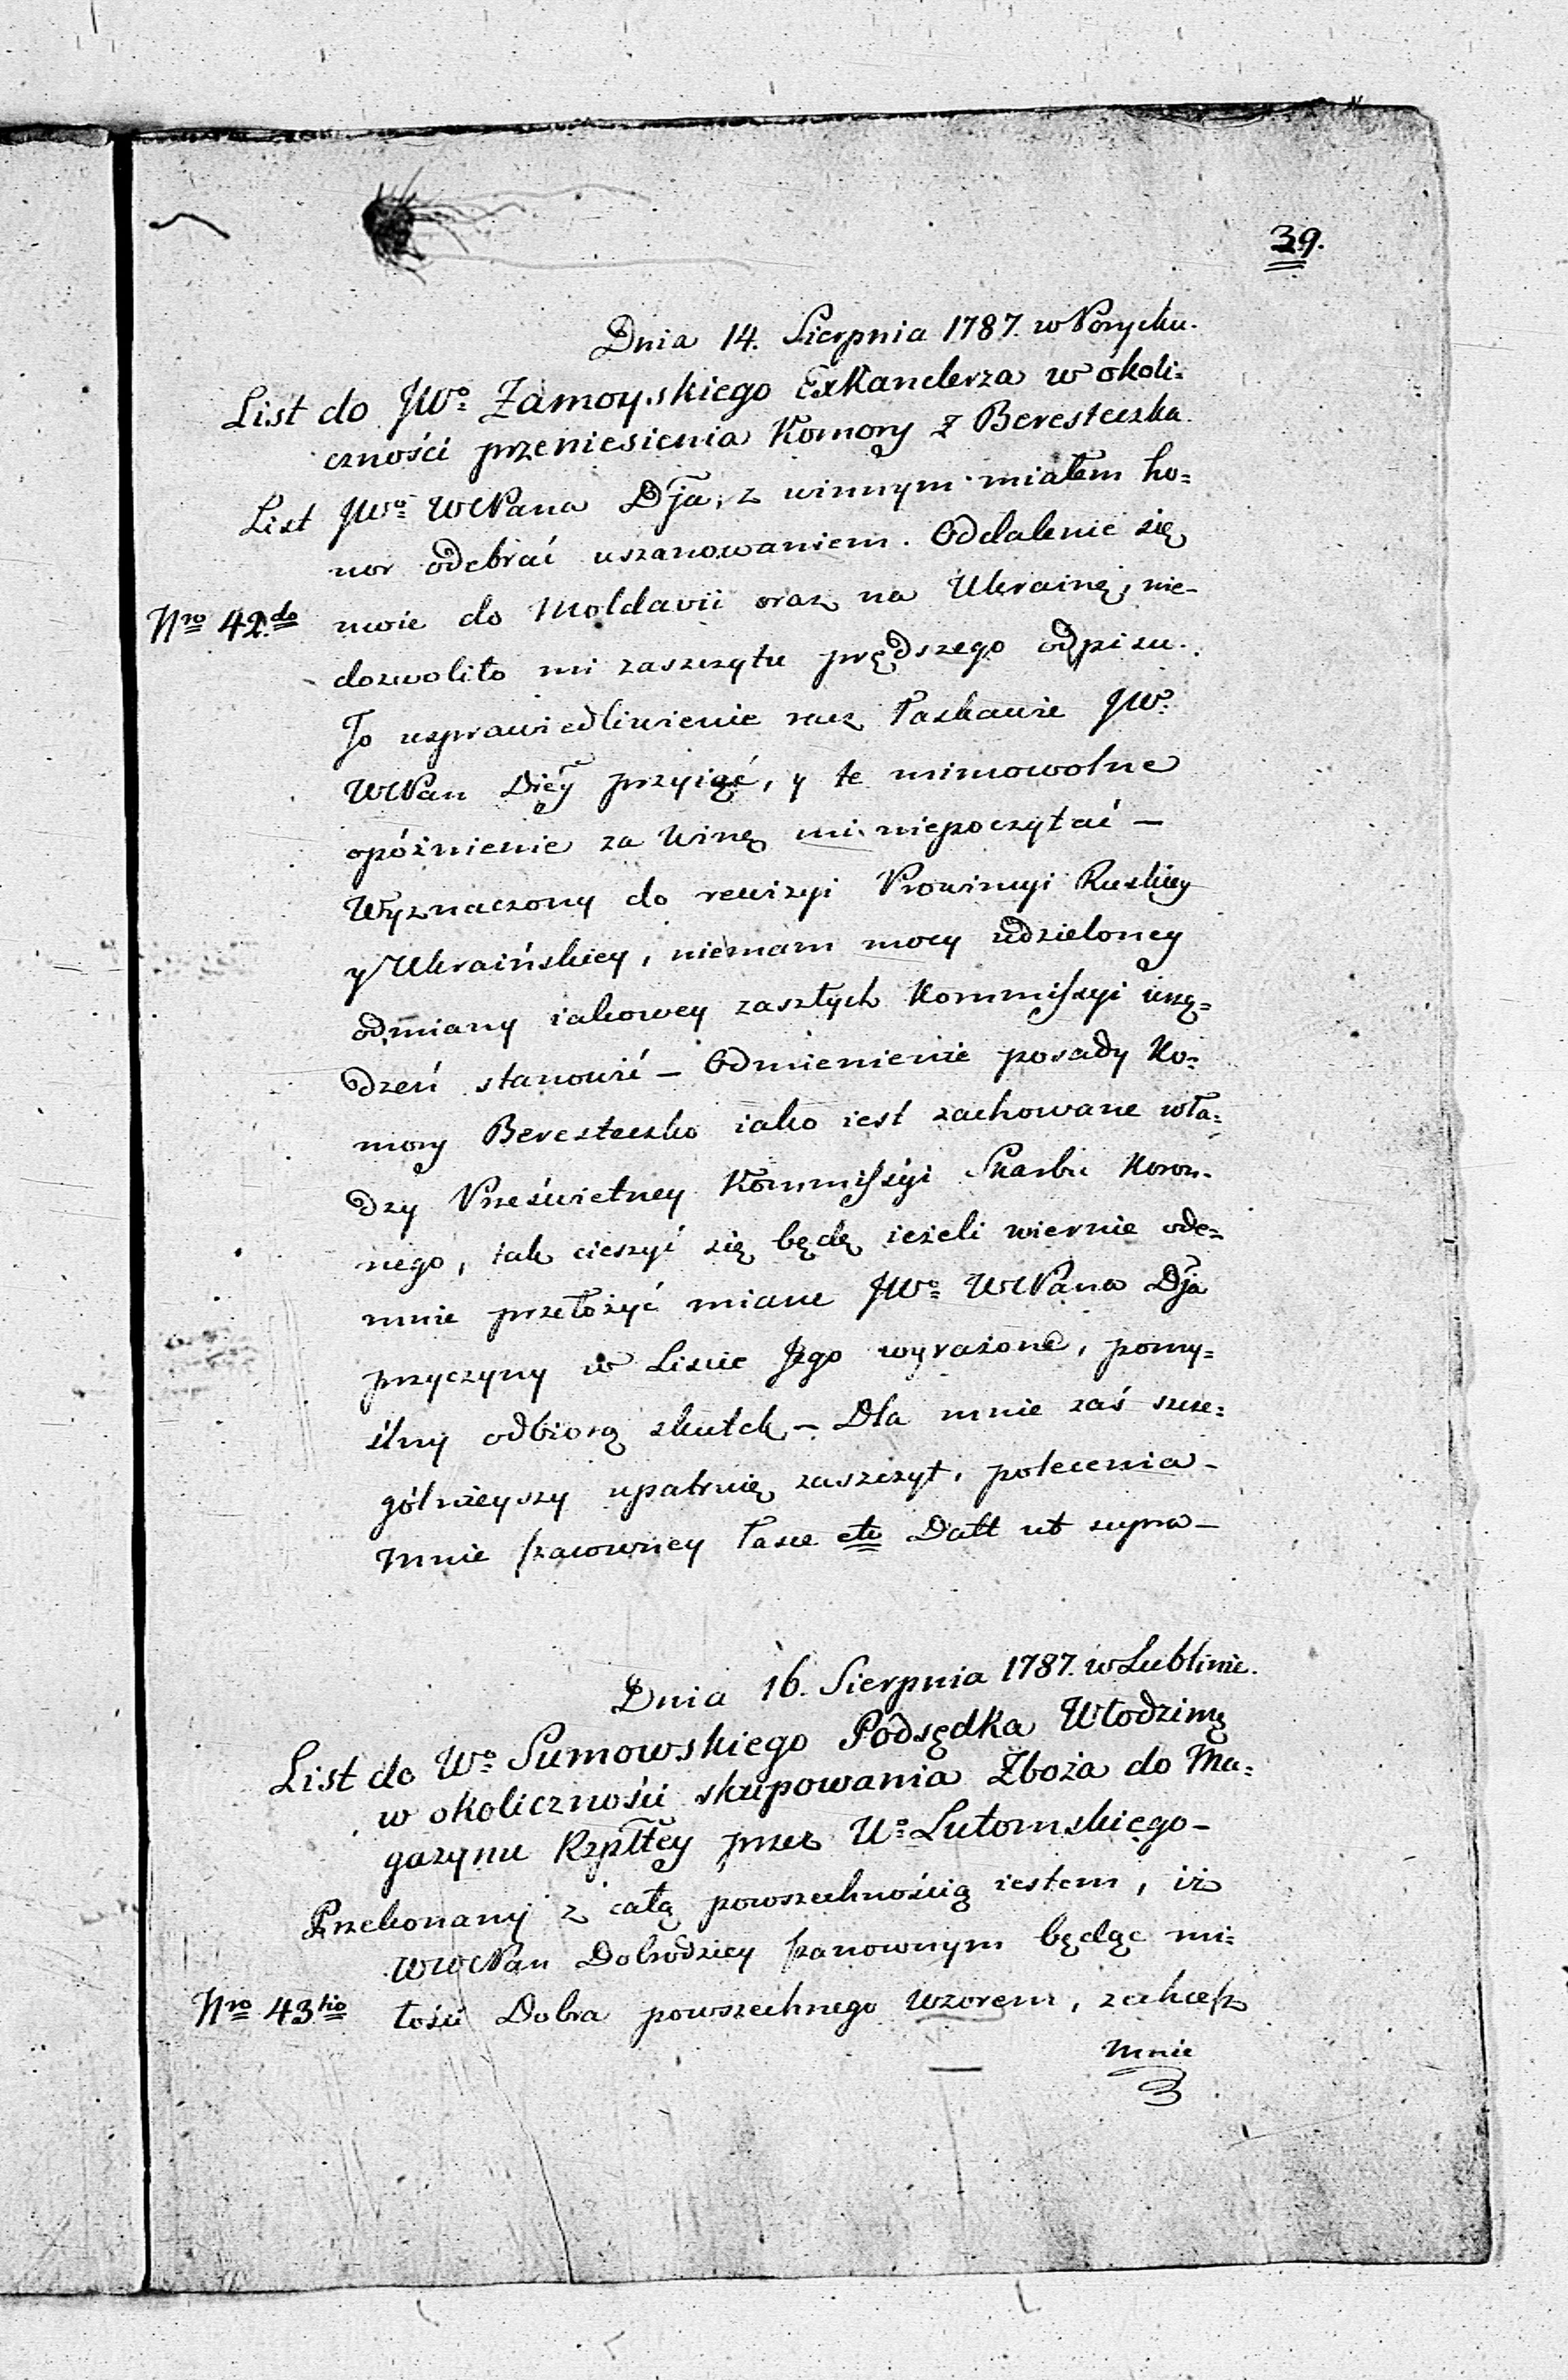 39.
Dnia 14. Sierpnia 1787. w Porycku.
List do JWº Zamoyskiego ExKanclerza w okoli=
czności przeniesienia Komory z Beresteczka.
List JWº WMPana Dja, z winnym miałem ho=
nor odebrać uszanowaniem. Oddalenie się
Nro 42do moie do Moldavii oraz na Ukrainę, nie-
dozwoliło mi zaszczytu prędszego odpisu.
To usprawiedliwienie racz łaskawie JWº
WMPan Dziéy przyiąć, y te mimowolne
opóźnienie za winę mi niepoczytać —
Wyznaczony do rewizyi Prowincyi Ruskiey
y Ukraińskiey, niemam mocy udzieloney
odmiany iakowey zaszłych Kommissyi urzą=
dzeń stanowić — Odmienienie posady Ko=
mory Beresteczko iako iest zachowane wła=
dzy Prześwietney Kommissyi Skarbu Koron-
nego, tak cieszyć się będę ieżeli wiernie ode=
mnie przełożyć miane JWº WMPana Dja
przyczyny w Liscie Jego wyrażone, pomy=
ślny odbiorą skutek — Dla mnie zaś szcze=
gólnieyszy upatruię zaszczyt, polecenia
mnie szacowney łasce etc Datt ut supra —
Dnia 16. Sierpnia 1787. w Lublinie.
List do Wº Sumowskiego Podsędka Włodzimę
w okoliczności skupowania Zboża do Ma=
gazynu Rzpltey przez Uº Lutomskiego —
Przekonany z całą powszechnością iestem, iż
WWMPan Dobrodziey szanownym będąc mi=
Nro 43tio łości Dobra powszechnego wzorem, zechcesz
mnie